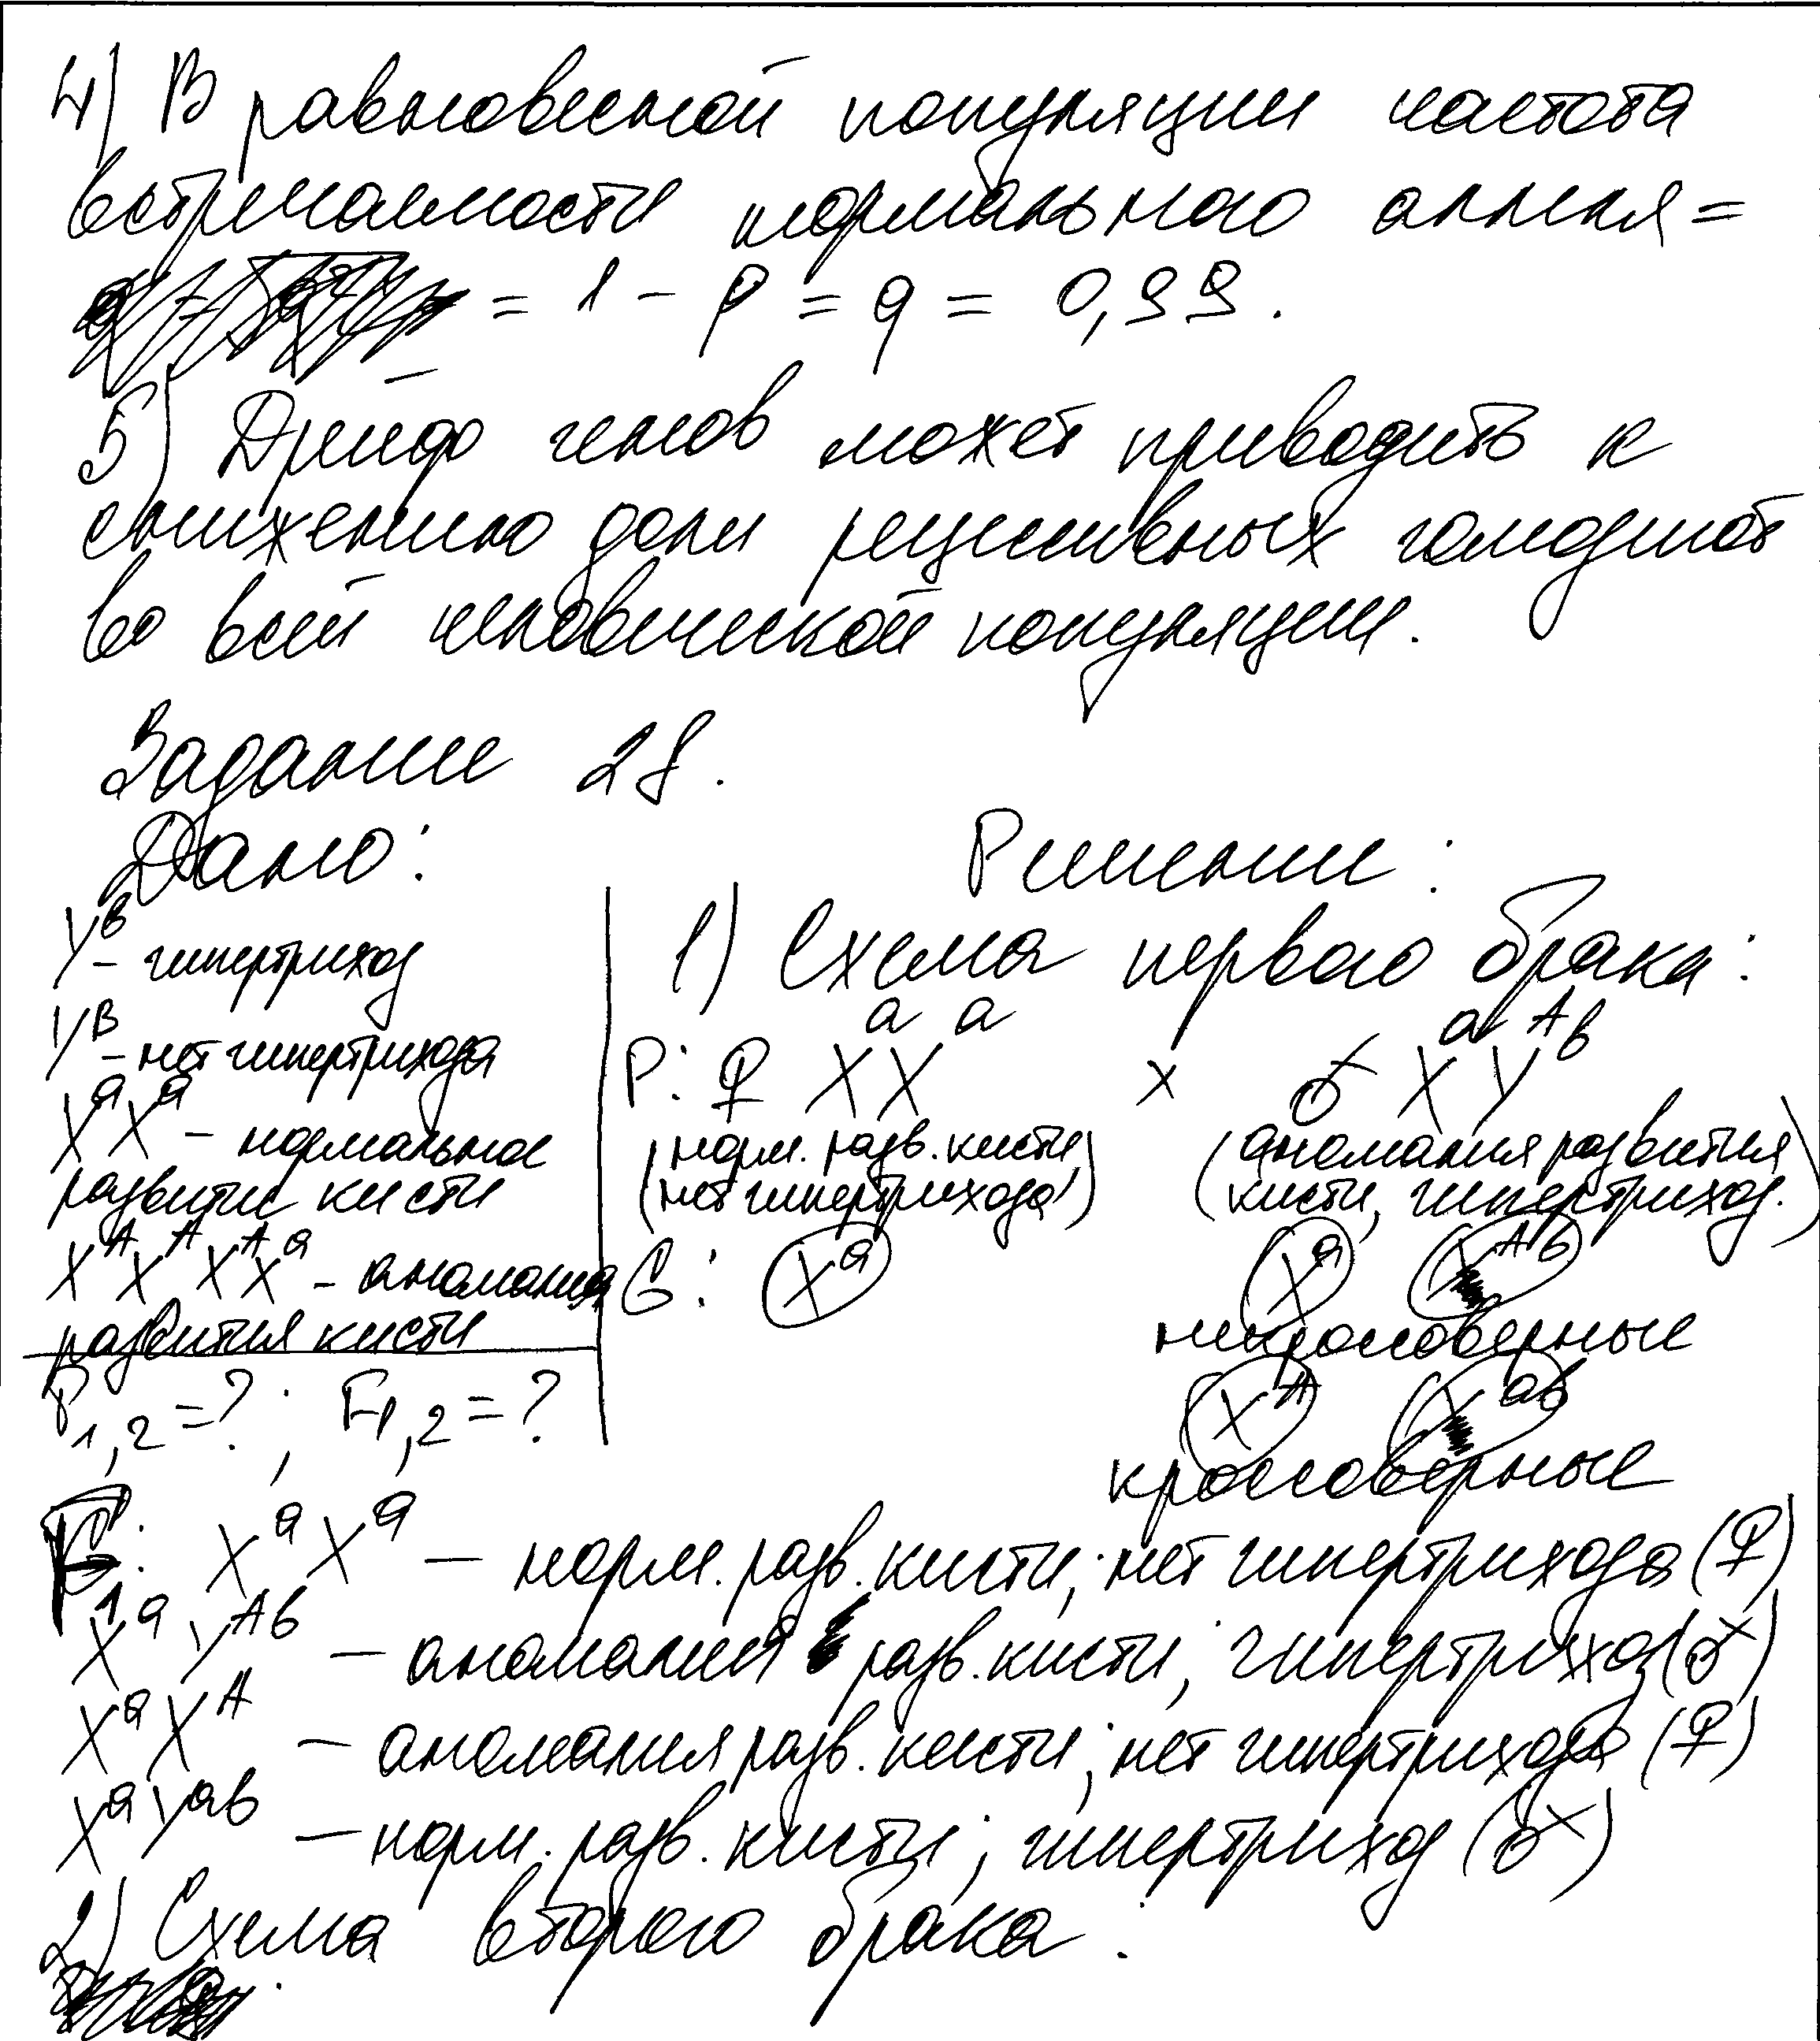 4) В равновесной популяции частота
встречаемости нормального аллеля =
= 1 - p = q = 0,99.
5) Дрейф генов может приводить к
снижению доли рецессивных гомозигот
во всей человеческой популяции.
Задание 28.
Дано:
Решение:
Yᵇ - гипертрихоз
Yᴮ - нет гипертрихоза
XᵃXᵃ - нормальное
развитие кисти
XᴬXᴬ XᴬXᵃ - аномалия
развития кисти
P₁,₂ = ?; F₁,₂ = ?
1) Схема первого брака:
P: ♀ XᵃXᵃ x ♂ XᵃYᴬᵇ
(норм. разв. кисти, (аномалия развития
нет гипертрихоза) кисти, гипертрихоз.)
G: Xᵃ Xᵃ Yᴬᵇ
некроссоверные
Xᴬ Yᵃᵇ
кроссоверные
F₁: XᵃXᵃ — норм. разв. кисти; нет гипертрихоза (♀)
XᵃYᴬᵇ — аномалия разв. кисти; гипертрихоз (♂)
XᵃXᴬ — аномалия разв. кисти; нет гипертрихоза (♀)
XᵃYᵃᵇ — норм. разв. кисти; гипертрихоз (♂)
2) Схема второго брака: